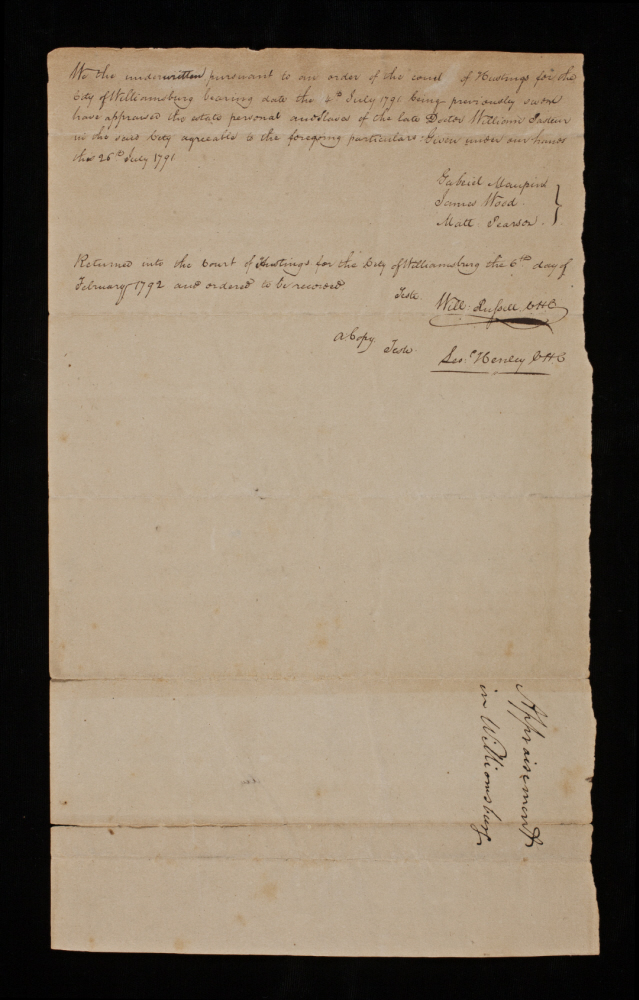 We the underwritten pursuant to an order of the court of Hustings for the
City of Williamsburg bearing date the 4th July 1791 being previously sworn
have appraised the estate personal and slaves of the late Doctor William Pasteur
in the said City agreeable to the foregoing particulars. Given under our hands
this 26th July 1791
Gabriel Maupin
James Wood
Matt. Pearson
Returned into the Court of Hustings for the City of Williamsburg the 6th day of
February 1792 and ordered to be recorded
Teste
Will: Russell CHC
A Copy
Teste
Leod. Henley CHC
Appraisement
in Williamsburg